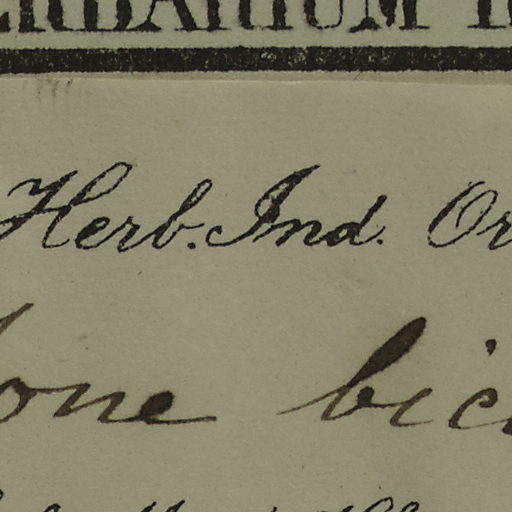 ERBARIUM
Herb. Ind. Or
one bic